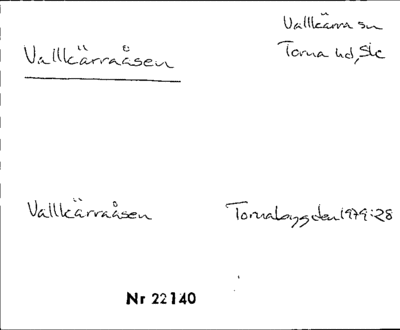 Vallkärra sn
Vallkärraåsen
Torna hd, Sk
Vallkärraåsen
Tornabygden 1979:28
Nr 22140